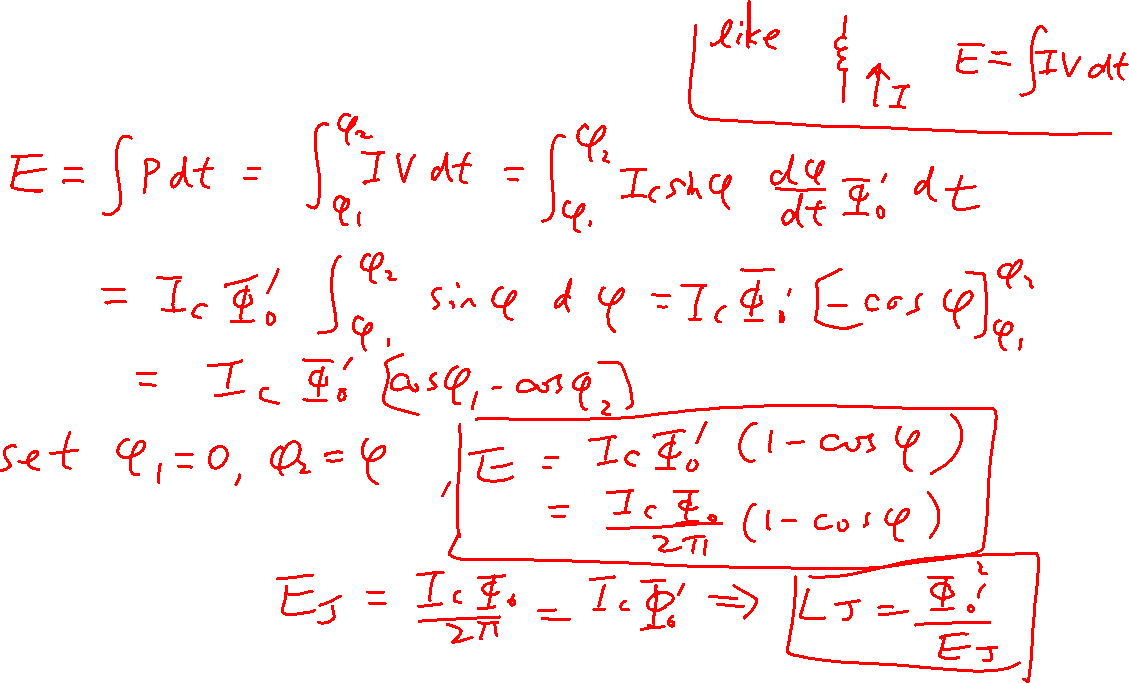 like ↑I E = ∫IV dt
E = ∫P dt = ∫_{φ₁}^{φ₂} IV dt = ∫_{φ₁}^{φ₂} I_c sin φ dφ/dt Φ₀' dt
= I_c Φ₀' ∫_{φ₁}^{φ₂} sin φ d φ = I_c Φ₀' [-cos φ]_{φ₁}^{φ₂}
= I_c Φ₀' [cos φ₁ - cos φ₂]
set φ₁ = 0, φ₂ = φ , E = I_c Φ₀' (1 - cos φ)
= I_c Φ₀ / 2π (1 - cos φ)
E_J = I_c Φ₀ / 2π = I_c Φ₀' ⇒ L_J = Φ₀'² / E_J